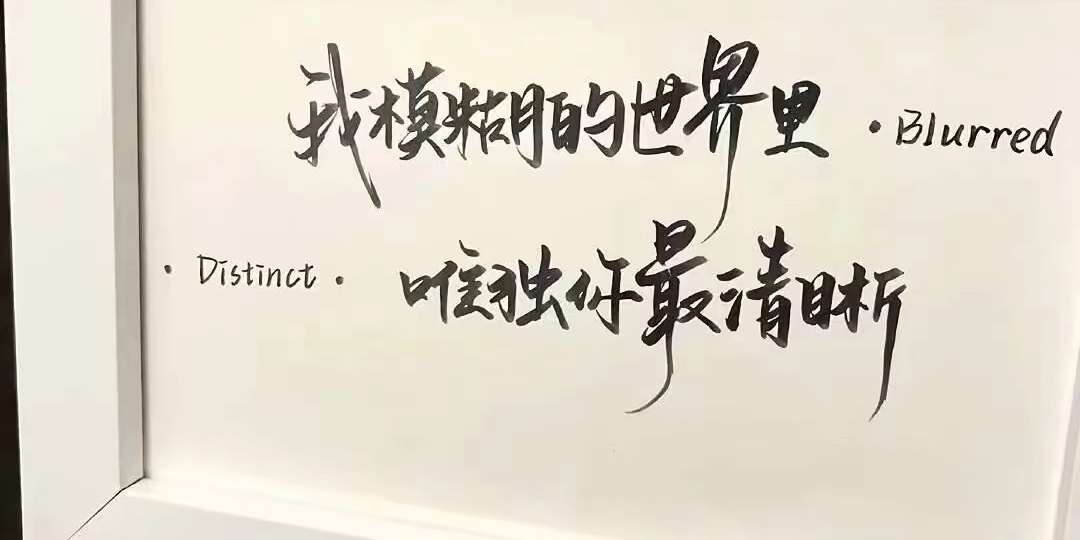 我模糊的世界里 · Blurred
· Distinct · 唯独你最清晰